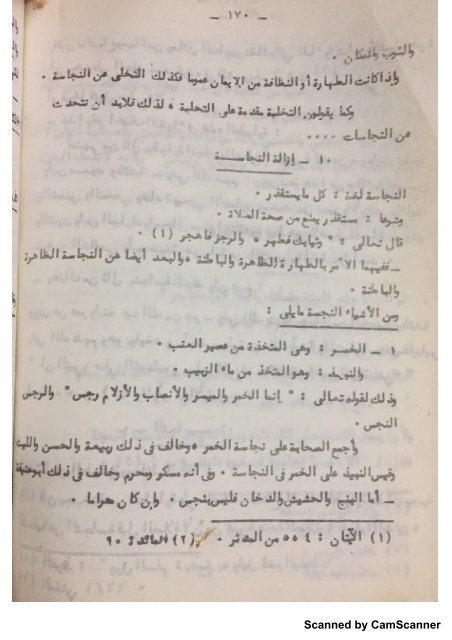 - ١٧٠ -
والثوب والمكان ٠
واذا كانت الطهارة أو النظافة من الايمان عموما فكذلك التخلى عن النجاسة ٠
وكما يقولون التخلية مقدمة على التحلية ٠ لذلك فلابد أن نتحدث
عن النجاسات ٠٠٠٠
١٠ - إزالة النجاســــة
النجاسة لغة : كل ما يستقذر ٠
وشرعا : مستقذر يمنع من صحة الصلاة ٠
قال تعالى : " وثيابك فطهر ٠ والرجز فاهجر (١) ٠
ـ ففيهما الأمر بالطهارة الظاهرة والباطنة ٠ والبعد أيضا عن النجاسة الظاهرة
والباطنة ٠
ومن الأشياء النجسة مايلى :
١ - الخمــر : وهى المتخذة من عصير العنب ٠
والنبيذ : وهو المتخذ من ماء الزبيب ٠
وذلك لقوله تعالى : " إنما الخمر والميسر والأنصاب والأزلام رجس " والرجس
النجس ٠
وأجمع الصحابة على نجاسة الخمر ٠ وخالف فى ذلك ربيعة والحسن والليث
وقيس النبيذ على الخمر فى النجاسة ٠ وفى أنه مسكر ومحرم وخالف فى ذلك أبوحنيفة
ـ أما البنج والحشيش والدخان فليس بنجس ٠ وإن كان حراما ٠
(١) الآيتان : ٤ ، ٥ من المدثر ٠ (٢) المائدة : ٩٠
Scanned by CamScanner